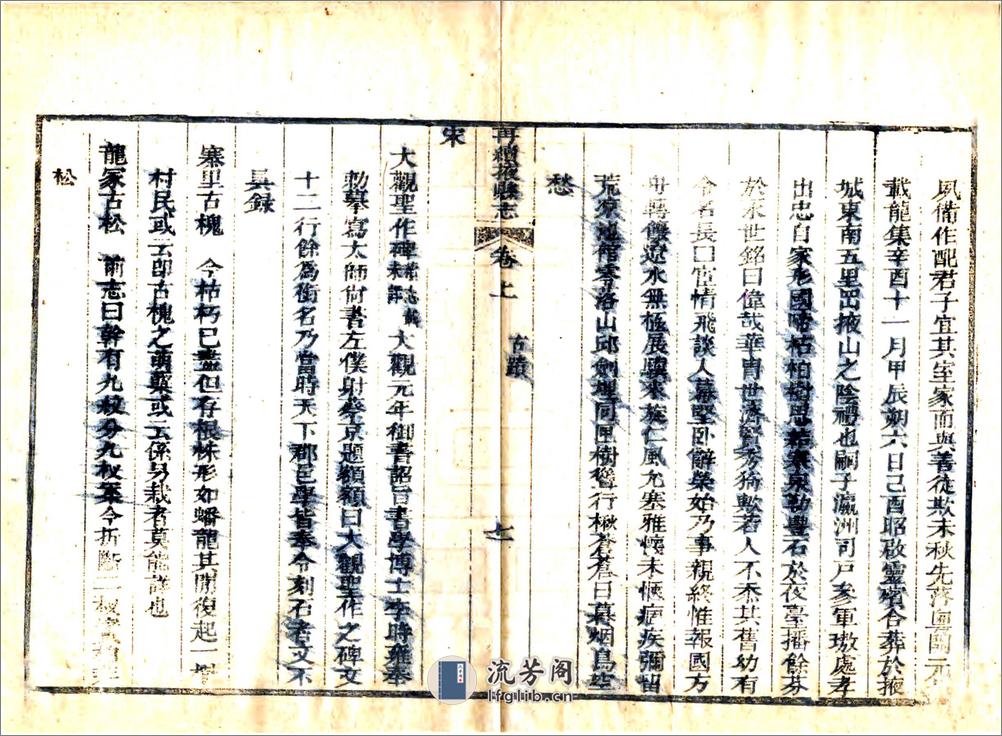 夙備作配君子宜其室家而與善徒欺未秋先落
載龍集辛酉十一月甲辰朔六日己酉昭啟靈賓合葬於掖
城東南五里出掖山之陰禮也嗣子瀛洲司戶參軍璈處孝
出忠自家形國啼枯柏樹思 泉勒豐石於夜臺播餘芬
於來世銘曰偉哉華胄世濟 秀猗歟若人不忝其舊幼有
令名長曰宦情飛談人幕堅卧辭榮始乃事親終惟報國方
舟轉餫遼水無極展驥來旋仁風允塞雅懷未愜痼疾彌留
荒涼 館零落山邱劍埋同匣樹 行楸蒼蒼日暮烟鳥空
愁
再續掖縣志
卷上
古蹟
七
宋
大觀聖作碑 大觀元年御書詔旨書學博士李時雍奉
勅摹寫太師尚書左僕射蔡京題額額曰大觀聖作之碑文
十二行餘為銜名乃當時天下郡邑學皆奉令刻石者文不
具錄
寨里古槐 今枯朽已盡但存根株形如蟠龍其開復起一
村民或云卽古槐之萌櫱或云係另栽者莫能詳也
龍冢古松 前志曰幹有九枝分九杈 今折斷二
松
流芳阁
lfglib.cn